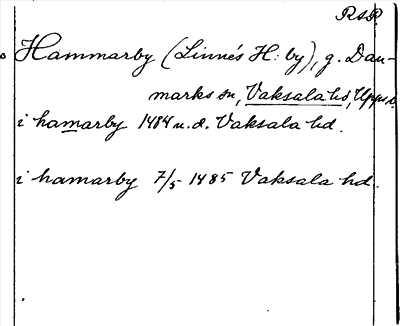 RSP
Hammarby (Linnés H:by), g. Dan-
marks sn, Vaksala hd, Upps.
i hamarby 1484 u.d. Vaksala hd.
i hamarby 7/5 1485 Vaksala hd.